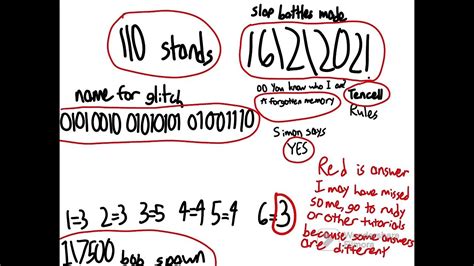 slap battles mode
110 stands
16121202!
Do you know who I am?
A forgotten memory
Tencell
Rules
name for glitch
01010010 01010101 01001110
Simon says
YES
Red is answer
I may have missed
some, go to rudy
or other tutorials
because some answers
are different
1=3 2=3 3=5 4=4 5=4 6=3
1\7500 bob spawn